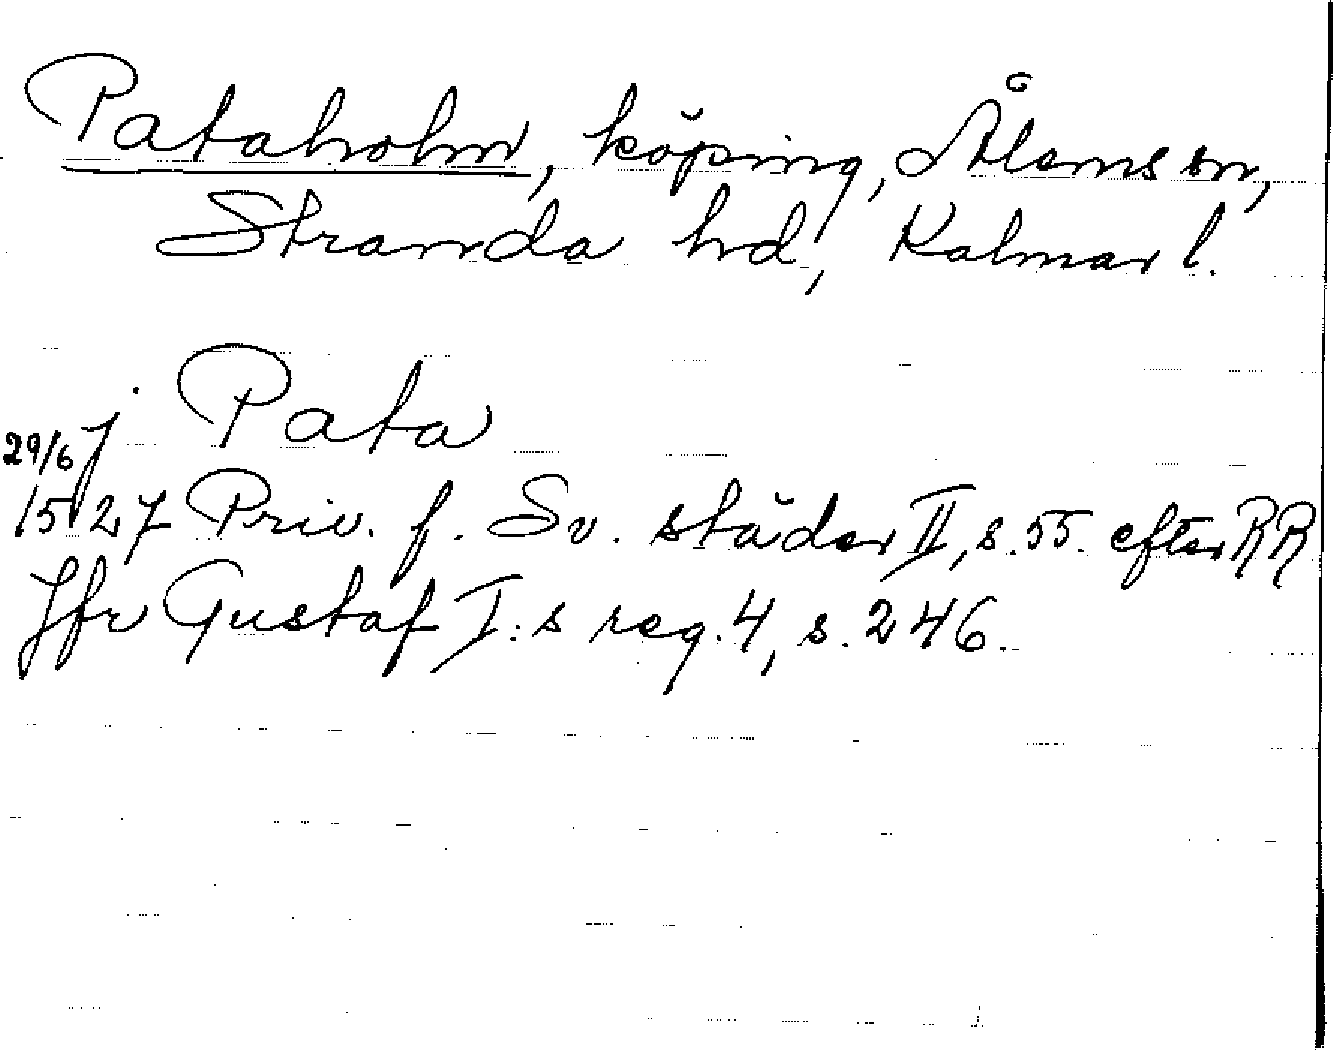 Pataholm, köping, Ålems sn,
Stranda hd, Kalmar l.
j Pata
29/6
1527 Priv. f. Sv. städer II, s. 55 efter RR
Jfr Gustaf I:s reg. 4, s. 246.